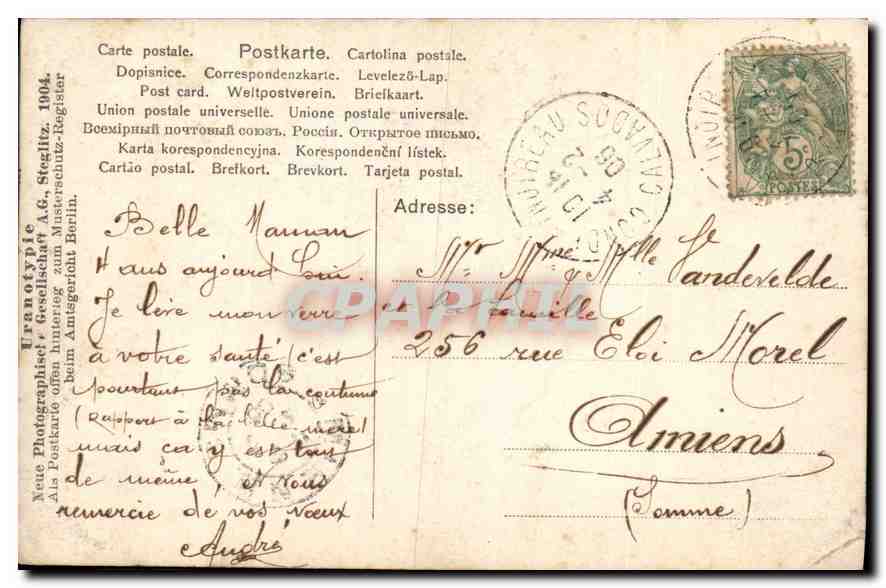 Carte postale. Postkarte. Cartolina postale.
Dopisnice. Correspondenzkarte. Levelező-Lap.
Post card. Weltpostverein. Briefkaart.
Union postale universelle. Unione postale universale.
Всемірный почтовый союзъ. Россія. Открытое письмо.
Karta korespondencyjna. Korespondenční lístek.
Cartão postal. Brefkort. Brevkort. Tarjeta postal.
Uranotypie
Neue Photographische Gesellschaft A.G., Steglitz. 1904.
Als Postkarte offen hinterleg zum Musterschutz-Register
beim Amtsgericht Berlin.
Belle Maman
4 ans aujourd'hui.
Je lève mon verre
à votre santé (c'est
pourtant pas la coutume
(rapport à la belle mère)
mais ça y est tout
de même et Nous
remercie de vos vœux
André
Adresse:
Mr Mme & Mlle Vandevelde
et la famille
256 rue Eloi Morel
Amiens
(Somme)
CONDÉ NOIREAU CALVADOS
5c
POSTES
CPAPHIL